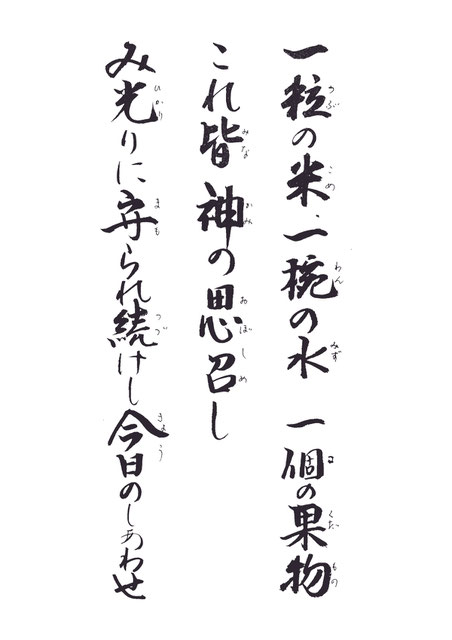 一粒の米、一椀の水 一個の果物
これ皆 神の思召し
み光りに守られ続けし今日のしあわせ